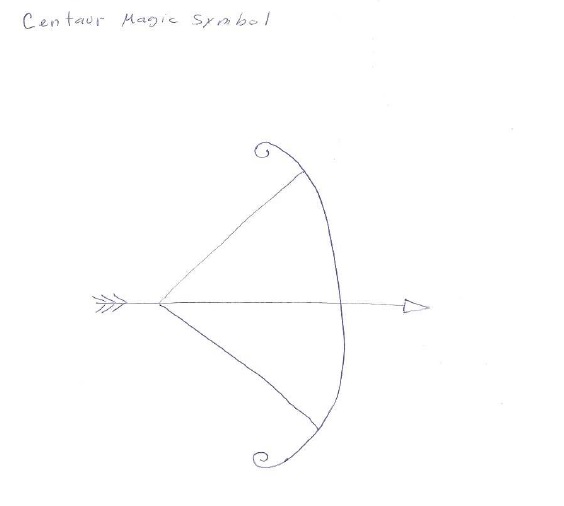 Centaur Magic Symbol